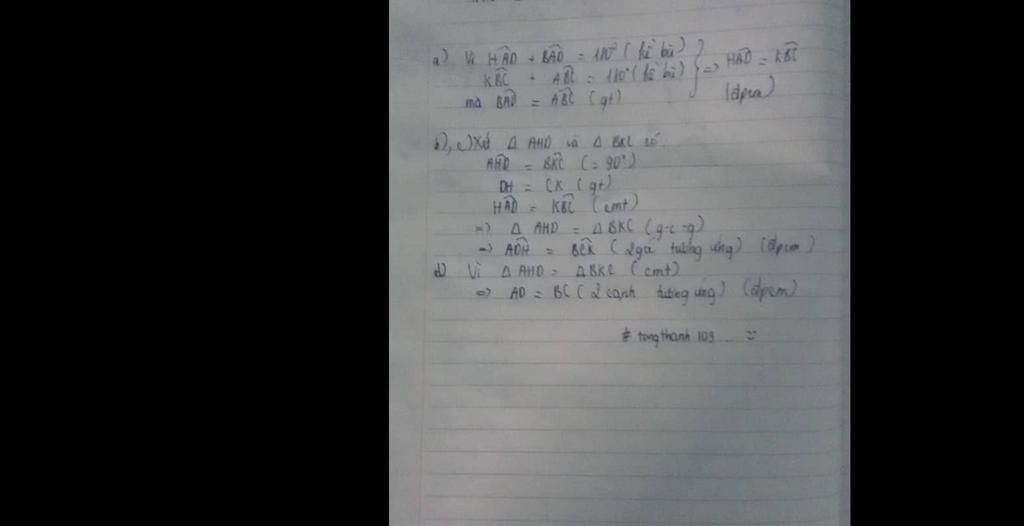 a) Vì HÂD + BÂD = 180° (kề bù)
KB̂C + AB̂C = 180° (kề bù) } => HÂD = KB̂C
mà BÂD = AB̂C (gt) (đpcm)
b), c) Xét Δ AHD và Δ BKC có
AĤD = BK̂C (= 90°)
DH = CK (gt)
HÂD = KB̂C (cmt)
=> Δ AHD = Δ BKC (g-c-g)
=> AD̂H = BĈK (2 góc tương ứng) (đpcm)
d) Vì Δ AHD = Δ BKC (cmt)
=> AD = BC (2 cạnh tương ứng) (đpcm)
# tongthanh 109 ...